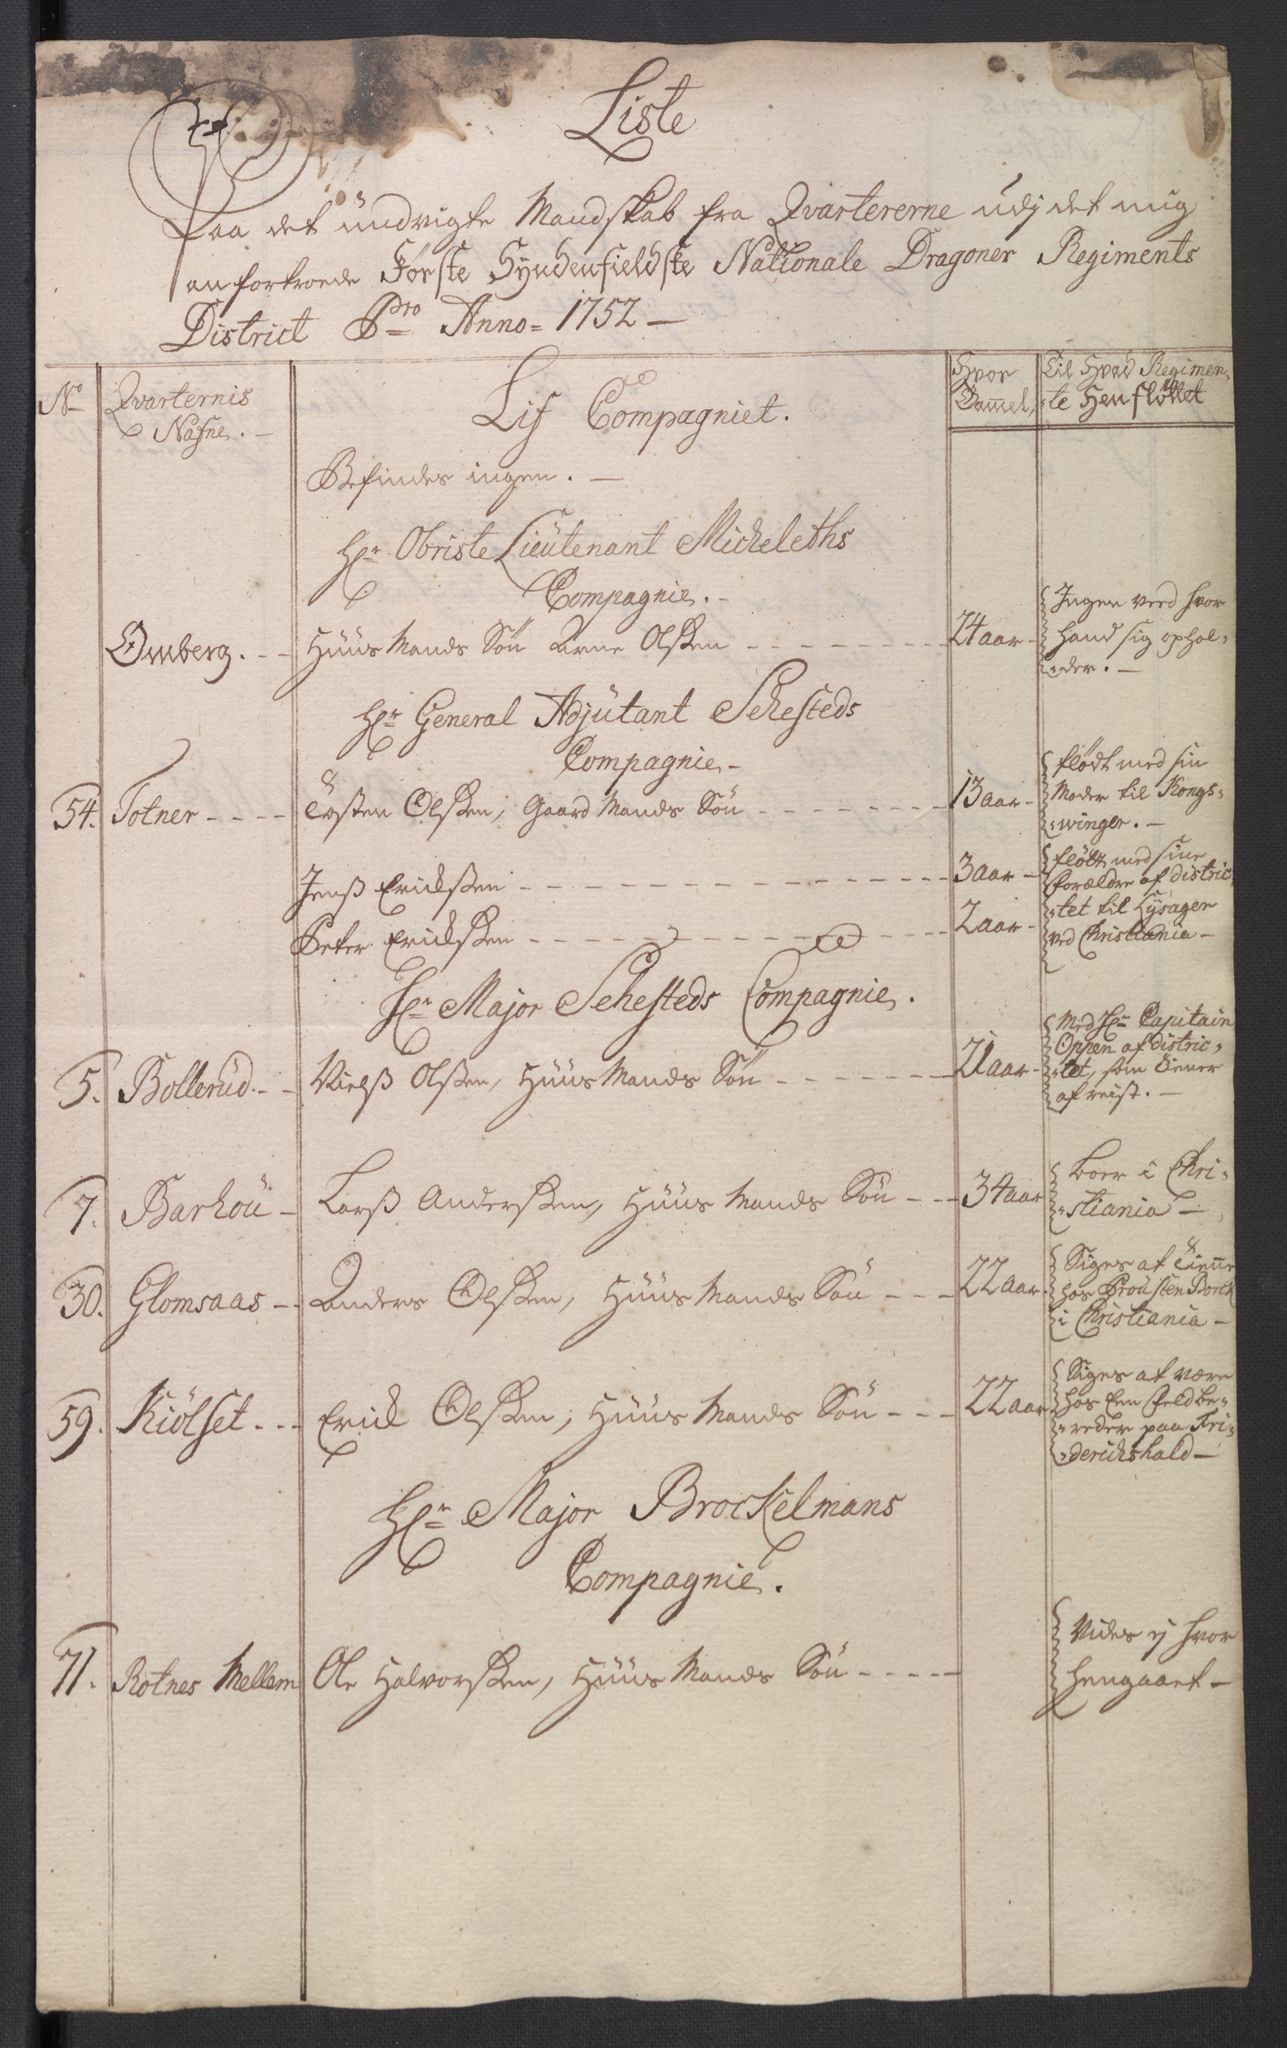 Liste
Paa det undvigte Mandskab fra Qvartererne udj det mig
anfortroede Første Syndenfieldske Nationale Dragoner Regiments
District Pro Anno = 1752 —
No
Qvarternis
Nafne. —
Lif Compagniet.
Hvor
Gammel,
Til Hvad Regimen-
te Henfløttet
Befindes ingen. —
Hr Obriste Lieutenant Micheleths
Compagnie. —
Omberg. - - Huus Mands Søn Arne Olsen - - - - - 24 aar - Ingen veed hvor
hand sig ophol-
der. —
Hr General Adjutant Sehesteds
Compagnie —
54. Totner - - - - Tosten Olsen, Gaard Mands Søn - - - - - 13 aar - flødt med sin
Moder til Kongs-
winger. —
Jenss Ericksen - - - - - - - - 3 aar - flødt med sine
forældre af distric-
Peter Ericksen - - - - - - - - 2 aar - tet til Lysager
ved Christiania —
Hr Major Sehesteds Compagnie.
5. Bollerud. - - Nielss Olsen, Huus Mands Søn - - - - - 21 aar - Med Hr Capitain
Oppen af distric-
tet, som tiener
af reist. —
7. Barhou - Larss Andersen, Huus Mands Søn - - - 34 aar Boer i Chri-
stiania —
30. Glomsaas - - Anders Olsen, Huus Mands Søn - - - 22 aar - Siges at tienne
hos Prousten Borck
i Christiania —
59. Kiölset - - - Erick Olsen, Huus Mands Søn - - - 22 aar Siges at være
hos Een feldbe-
reder paa Fri-
derickshald —
Hr Major Brockelmans
Compagnie.
71. Rotnes Mellem Ole Halvorsen, Huus Mands Søn - - - - - Vides ej hvor
hengaaet —